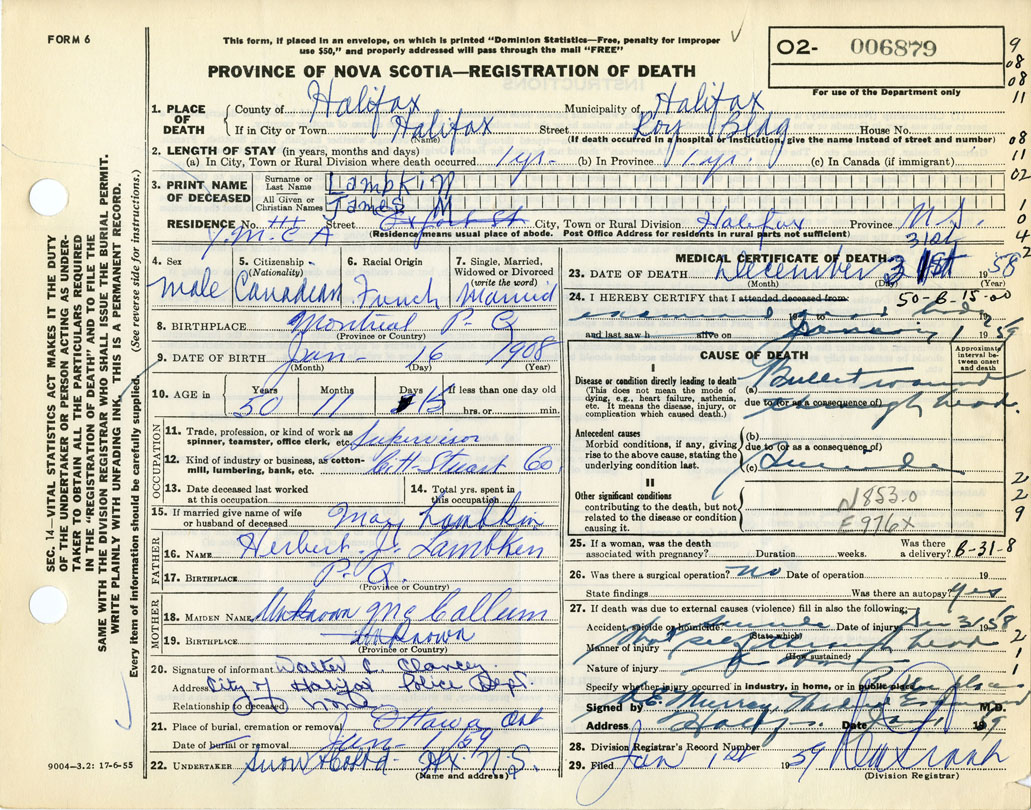 FORM 6
This form, if placed in an envelope, on which is printed "Dominion Statistics—Free, penalty for improper
use $50," and properly addressed will pass through the mail "FREE"
PROVINCE OF NOVA SCOTIA—REGISTRATION OF DEATH
02- 006879
For use of the Department only
9
08
08
11
08
11
02
1
0
4
2
2
2
9
2
1
1
SEC. 14—VITAL STATISTICS ACT MAKES IT THE DUTY
OF THE UNDERTAKER OR PERSON ACTING AS UNDER-
TAKER TO OBTAIN ALL THE PARTICULARS REQUIRED
IN THE "REGISTRATION OF DEATH" AND TO FILE THE
SAME WITH THE DIVISION REGISTRAR WHO SHALL ISSUE THE BURIAL PERMIT.
WRITE PLAINLY WITH UNFADING INK. THIS IS A PERMANENT RECORD.
Every item of information should be carefully supplied. (See reverse side for instructions.)
1. PLACE OF DEATH
County of Halifax Municipality of Halifax
If in City or Town Halifax Street Roy Bldg House No.
(Name) (If death occurred in a hospital or institution, give the name instead of street and number)
2. LENGTH OF STAY (in years, months and days)
(a) In City, Town or Rural Division where death occurred 1 yr. (b) In Province 1 yr. (c) In Canada (if immigrant)
3. PRINT NAME OF DECEASED
Surname or Last Name Lampkin
All Given or Christian Names James M
RESIDENCE No. Street City, Town or Rural Division Halifax Province N.S.
Y.M.C.A (Residence means usual place of abode. Post Office Address for residents in rural parts not sufficient)
4. Sex
male
5. Citizenship (Nationality)
Canadian
6. Racial Origin
French
7. Single, Married, Widowed or Divorced (write the word)
Married
8. BIRTHPLACE Montreal P.Q
(Province or Country)
9. DATE OF BIRTH Jan - 16 1908
(Month) (Day) (Year)
10. AGE in Years Months Days If less than one day old
50 11 15 hrs. or min.
OCCUPATION
11. Trade, profession, or kind of work as
spinner, teamster, office clerk, etc. Supervisor
12. Kind of industry or business, as cotton-
mill, lumbering, bank, etc. Stuart Co.
13. Date deceased last worked
at this occupation
14. Total yrs. spent in
this occupation
15. If married give name of wife
or husband of deceased Mary Lambkin
FATHER
16. NAME Herbert J. Lambken
17. BIRTHPLACE P.Q.
(Province or Country)
MOTHER
18. MAIDEN NAME Unknown McCallum
19. BIRTHPLACE Unknown
(Province or Country)
20. Signature of informant Walter C. Clancey
Address City of Halifax Police Dept
Relationship to deceased None
21. Place of burial, cremation or removal Ottawa Ont
Date of burial or removal Jan - 1/59
22. UNDERTAKER Snow Hx. N.S.
(Name and address)
9004—3.2: 17-6-55
MEDICAL CERTIFICATE OF DEATH
31st
23. DATE OF DEATH December 31st 1958
(Month) (Day) (Year)
24. I HEREBY CERTIFY that I attended deceased from 50-B-15-00
examined body
19 to 19
and last saw h alive on January 1 1959
CAUSE OF DEATH
Approximate interval between onset and death
I
Disease or condition directly leading to death
(This does not mean the mode of
dying, e.g., heart failure, asthenia,
etc. It means the disease, injury, or
complication which caused death.)
(a) Bullet wound
due to (or as a consequence of)
through head.
Antecedent causes
Morbid conditions, if any, giving
rise to the above cause, stating the
underlying condition last.
(b)
due to (or as a consequence of)
(c) Suicide
II
Other significant conditions
contributing to the death, but not
related to the disease or condition
causing it.
N853.0
E976X
25. If a woman, was the death
associated with pregnancy? Duration weeks. Was there
a delivery? B-31-8
26. Was there a surgical operation? no Date of operation 19
State findings Was there an autopsy? yes
27. If death was due to external causes (violence) fill in also the following:
Accident, suicide or homicide Suicide Date of injury Dec 31 1958
(State which)
Manner of injury Shot self through head
(How sustained)
Nature of injury
Specify whether injury occurred in industry, in home, or in public place
Signed by E. Murray, Medical M.D.
Address Halifax Date Jan 1959
28. Division Registrar's Record Number
29. Filed Jan 1st 1959
(Division Registrar)